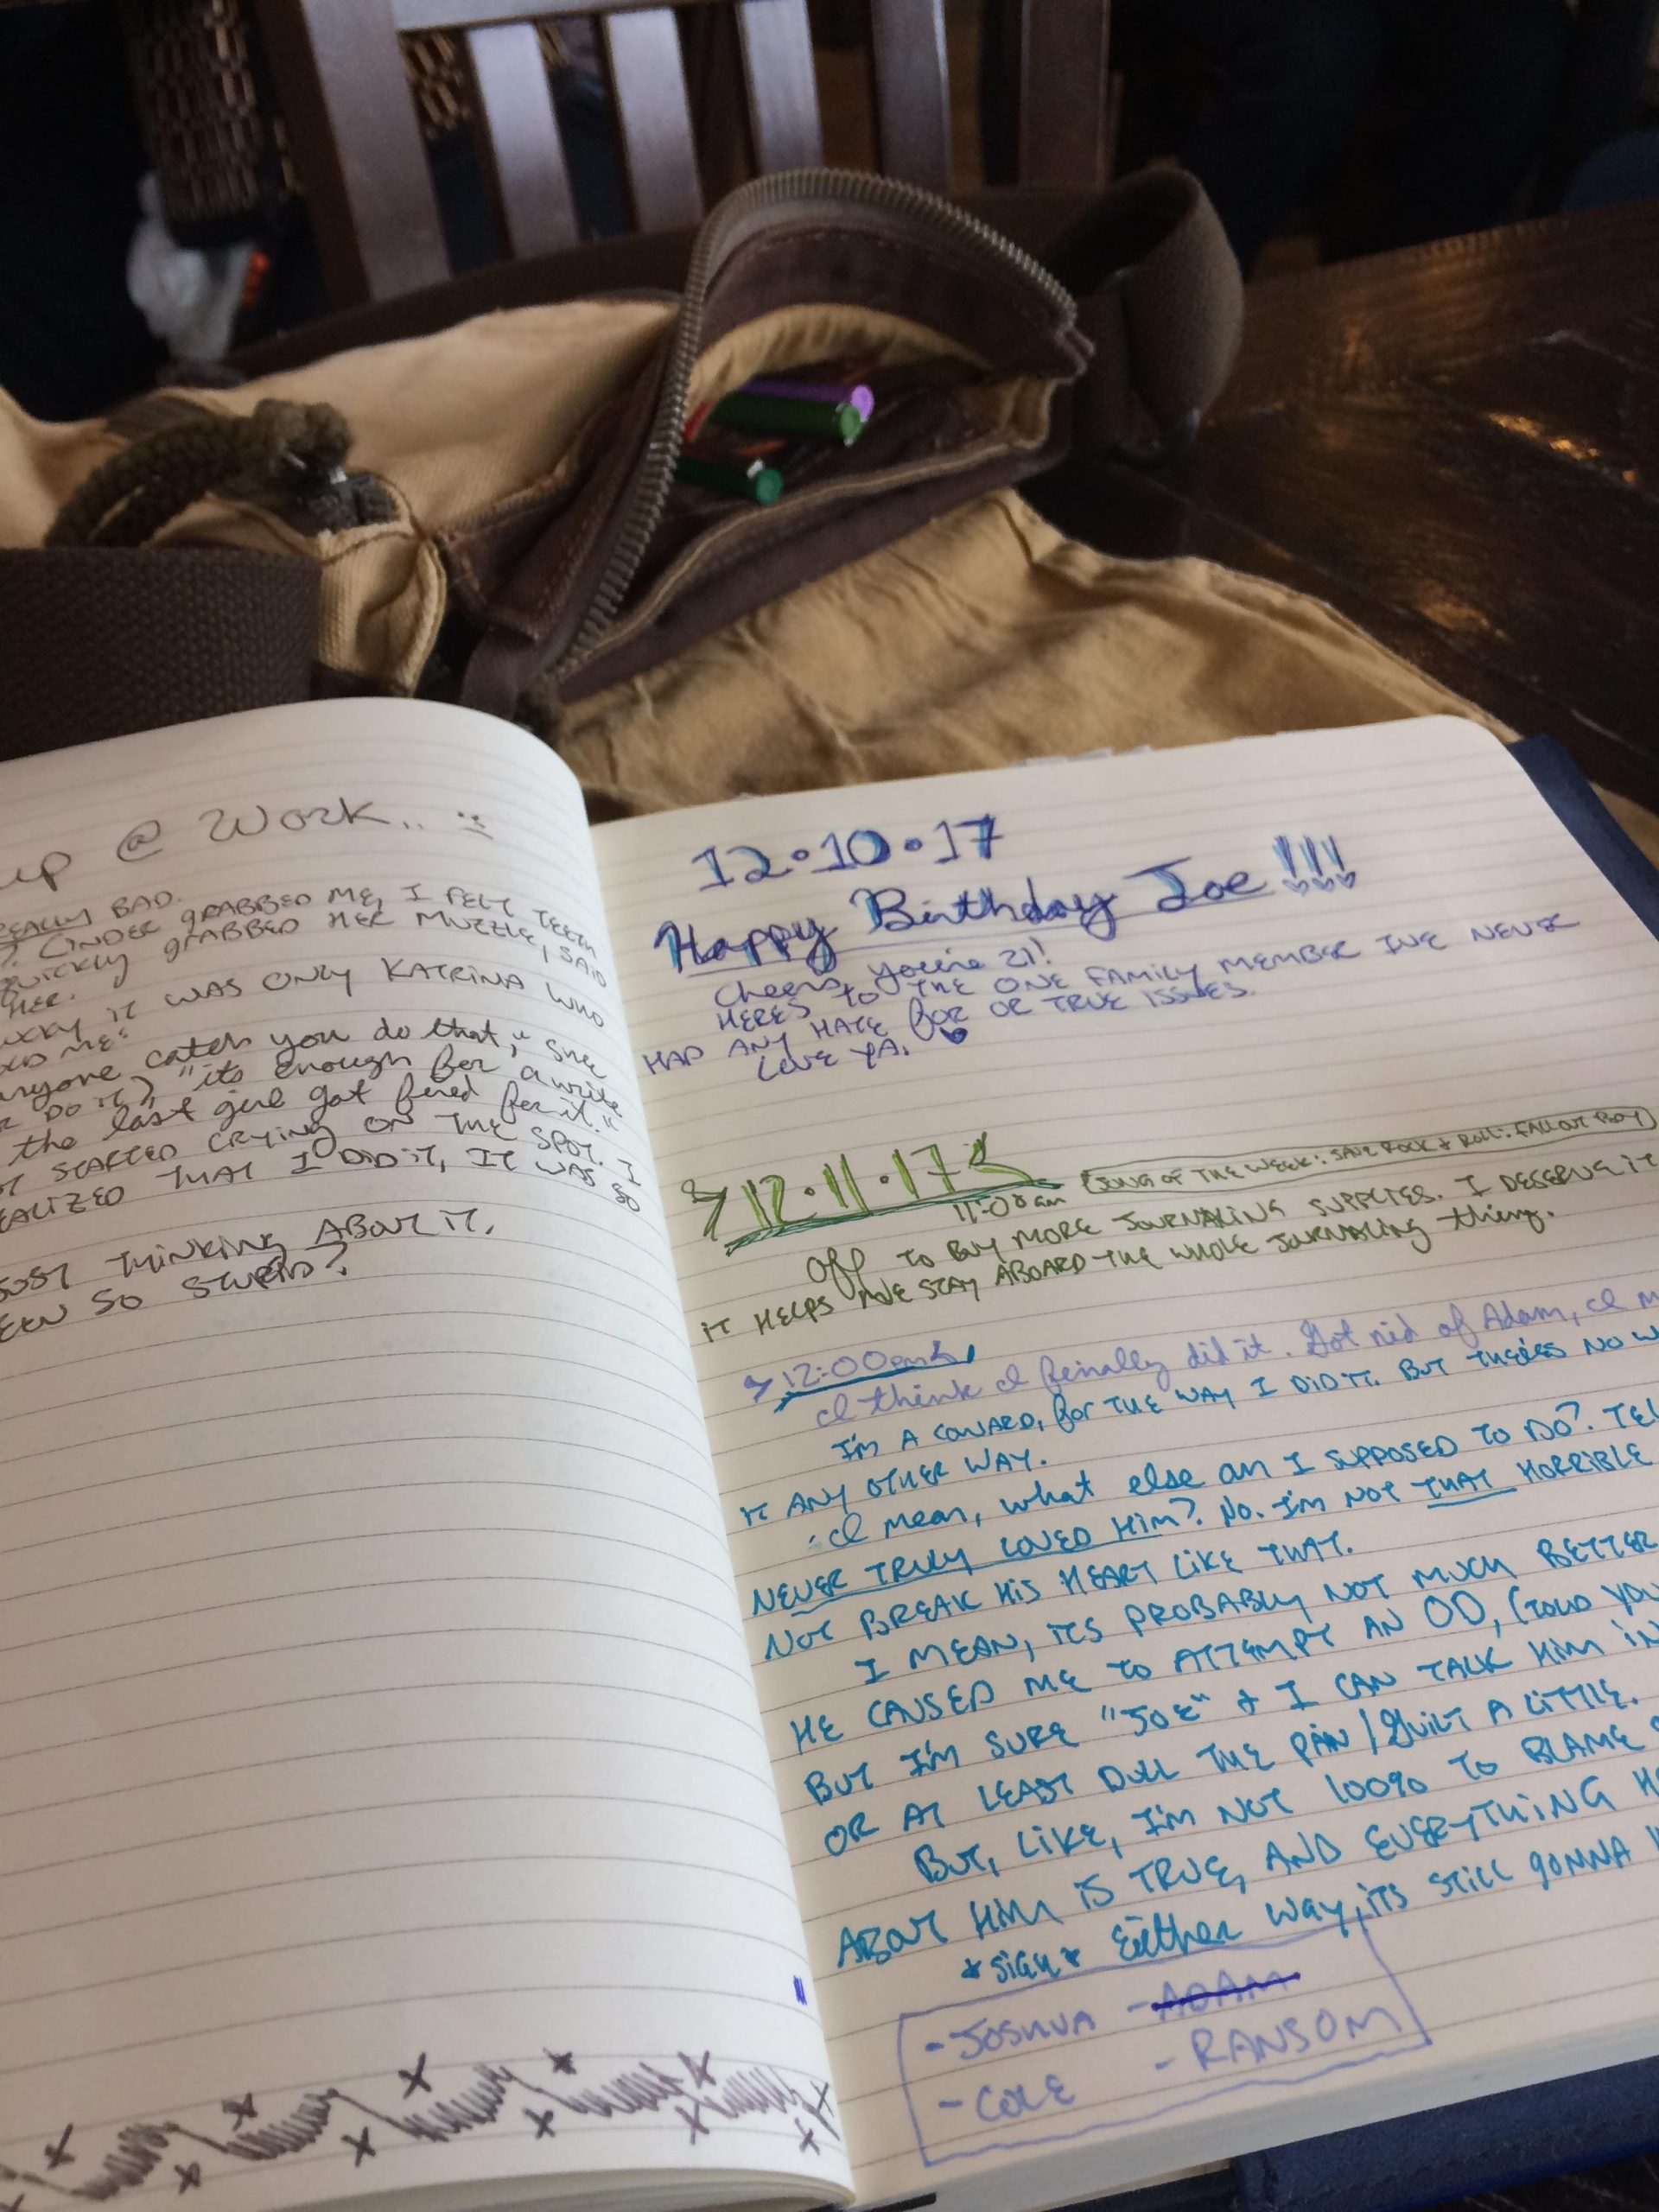 up @ Work..
REALLY BAD.
? CINDER GRABBED ME, I FELT TEETH
QUICKLY GRABBED HER MUZZLE, SAID
HER.
IT WAS ONLY KATRINA WHO
ME:
anyone catch you do that," she
DO IT) "its enough for a write
the last girl got fired for it."
STARTED CRYING ON THE SPOT. I
REALIZED THAT I DID IT, IT WAS SO
JUST THINKING ABOUT IT.
SO STUPID?
12•10•17
Happy Birthday Joe!!!
Cheers, you're 21!
HERES TO THE ONE FAMILY MEMBER IVE NEVER
HAD ANY HATE for OR TRUE ISSUES.
LOVE YA.
12•11•17
11:00am (SONG OF THE WEEK: SAVE ROCK + ROLL: FALLOUT BOY)
Off TO BUY MORE JOURNALING SUPPLIES. I DESERVE IT
IT HELPS ME STAY ABOARD THE WHOLE JOURNALING thing.
12:00pm
I think I finally did it. Got rid of Adam, I m
I'M A COWARD, for THE WAY I DID IT. BUT THERES NO W
IT ANY OTHER WAY.
I mean, what else am I SUPPOSED TO DO? TEL
NEVER TRULY LOVED HIM? NO. I'M NOT THAT HORRIBLE
NOT BREAK HIS HEART LIKE THAT.
I MEAN, ITS PROBABLY NOT MUCH BETTER
HE CAUSED ME TO ATTEMPT AN OD, (TOLD YOU
BUT I'M SURE "JOE" + I CAN TALK HIM IN
OR AT LEAST DULL THE PAIN/GUILT A LITTLE.
BUT, LIKE, I'M NOT 100% TO BLAME
ABOUT HIM IS TRUE, AND EVERYTHING H
*SIGH* Either way, its still gonna
-JOSHUA -ADAM
-COLE -RANSOM